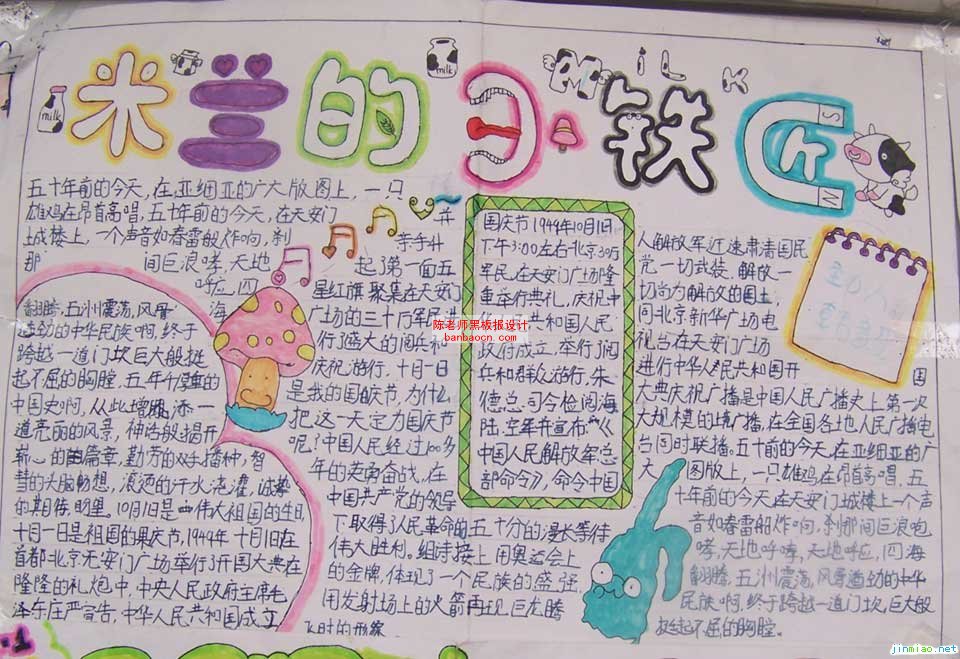 milk
milk
MiLK
米兰的
铁
S
N
五十年前的今天，在亚细亚的广大版图上，一只
雄鸡在昂首高唱，五十年前的今天，在天安门
城楼上，一个声音如春雷般炸响，刹
那间巨浪哮，天地
呼应，四海
翻腾，五洲震荡，风骨
遒动的中华民族啊，终于
跨越一道门坎巨大般挺
起不屈的胸膛，五千年
中国史啊，从此增添一
道亮丽的风景，神话般揭开
崭心的篇章，勤劳的双手播种，智
慧的大脑畅想，滚烫的汗水浇灌，诚挚
的其期待明里。10月1日是伟大祖国的生日
十月一日是祖国的国庆节，1949年十月1日在
首都北京天安门广场举行开国大典在
隆隆的礼炮中，中央人民政府主席毛
泽东庄严宣告，中华人民共和国成立
并
冉冉升
起了第一面五
星红旗，聚集在天安门
广场的三十万军民进
行了盛大的阅兵和
庆祝游行，十月一日
是我的国庆节，为什么
把这一天定为国庆节
呢？中国人民经过100多
年的英勇奋战，在
中国共产党的领导
下，取得了人民革命的
伟大胜利。
五十分的漫长等待
上用奥运会上
的金牌，体现了一个民族的盛强
用发射场上的火箭再现巨龙腾
飞时的形象
国庆节1949年10月1日
下午3:00左右北京30万
军民，在天安门广场隆
重举行典礼，庆祝中
共和国人民
政府成立，举行了阅
兵和群众游行，朱
德总司令检阅海
陆空军并宣布《
中国人民解放军总
部命令》，命令中国
人民解放军迅速肃清国民
党一切武装，解放一
切尚为解放的国土
同北京新华广场电
视台在天安门广场
进行中华人民共和国开国
大典庆祝广播是中国人民广播史上第一次
大规模的境广播，在全国各地人民广播电
台同时联播。五十前的今天，在亚细亚的广
大图版上，一只雄鸡在昂首高唱，五
十年前的今天在天安门城楼上一个声
音如春雷般炸响，刹那间巨浪咆
哮，天地呼哮，天地呼应，四海
翻腾，五洲震荡，风骨遒动的中华
民族啊，终于跨越一道门坎，巨大般
挺起不屈的胸膛。
陈老师黑板报设计
banbaocn.com
jinmiao.net